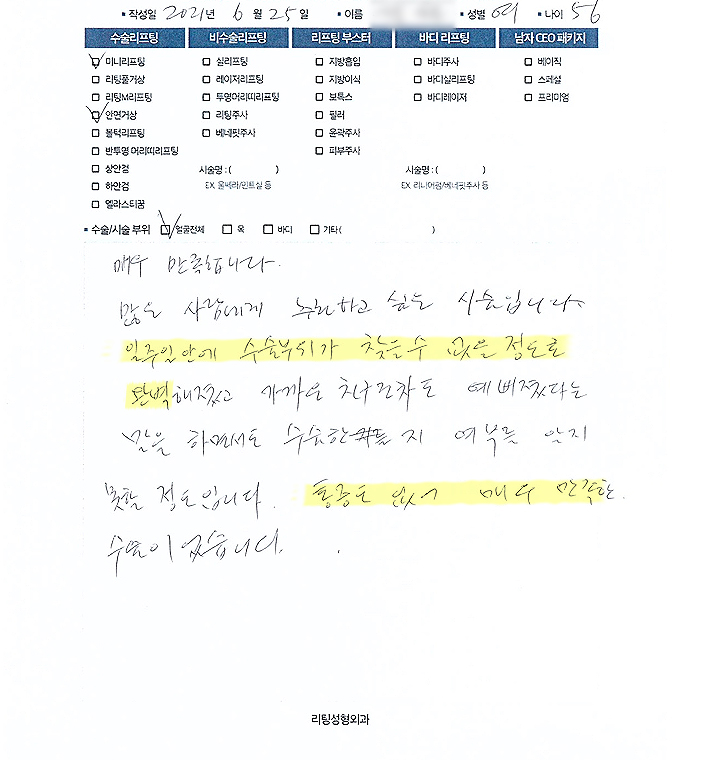 ▪ 작성일 2021년 6월 25일 ▪ 이름 ▪ 성별 여 ▪ 나이 56
수술리프팅 비수술리프팅 리프팅 부스터 바디 리프팅 남자 CEO 패키지
미니리프팅 실리프팅 지방흡입 바디주사 베이직
리팅풀거상 레이저리프팅 지방이식 바디실리프팅 스페셜
리팅M리프팅 투명어리띠리프팅 보톡스 바디레이저 프리미엄
안면거상 리팅주사 필러
볼턱리프팅 베네핏주사 윤곽주사
반투명 어리띠리프팅 피부주사
상안검 시술명 : ( ) 시술명 : ( )
하안검 EX. 울쎄라/민트실 등 EX. 리니어펌/베네핏주사 등
엘라스티꿈
▪ 수술/시술 부위 얼굴전체 목 바디 기타( )
매우 만족합니다.
많은 사람에게 추천하고 싶은 시술입니다.
일주일안에 수술부위가 찾을수 없을 정도로
완벽해졌고 가까운 친구조차도 예뻐졌다는
말을 하면서도 수술한 지 여부를 알지
못할 정도입니다. 통증도 없어 매우 만족한
수술이었습니다.
리팅성형외과